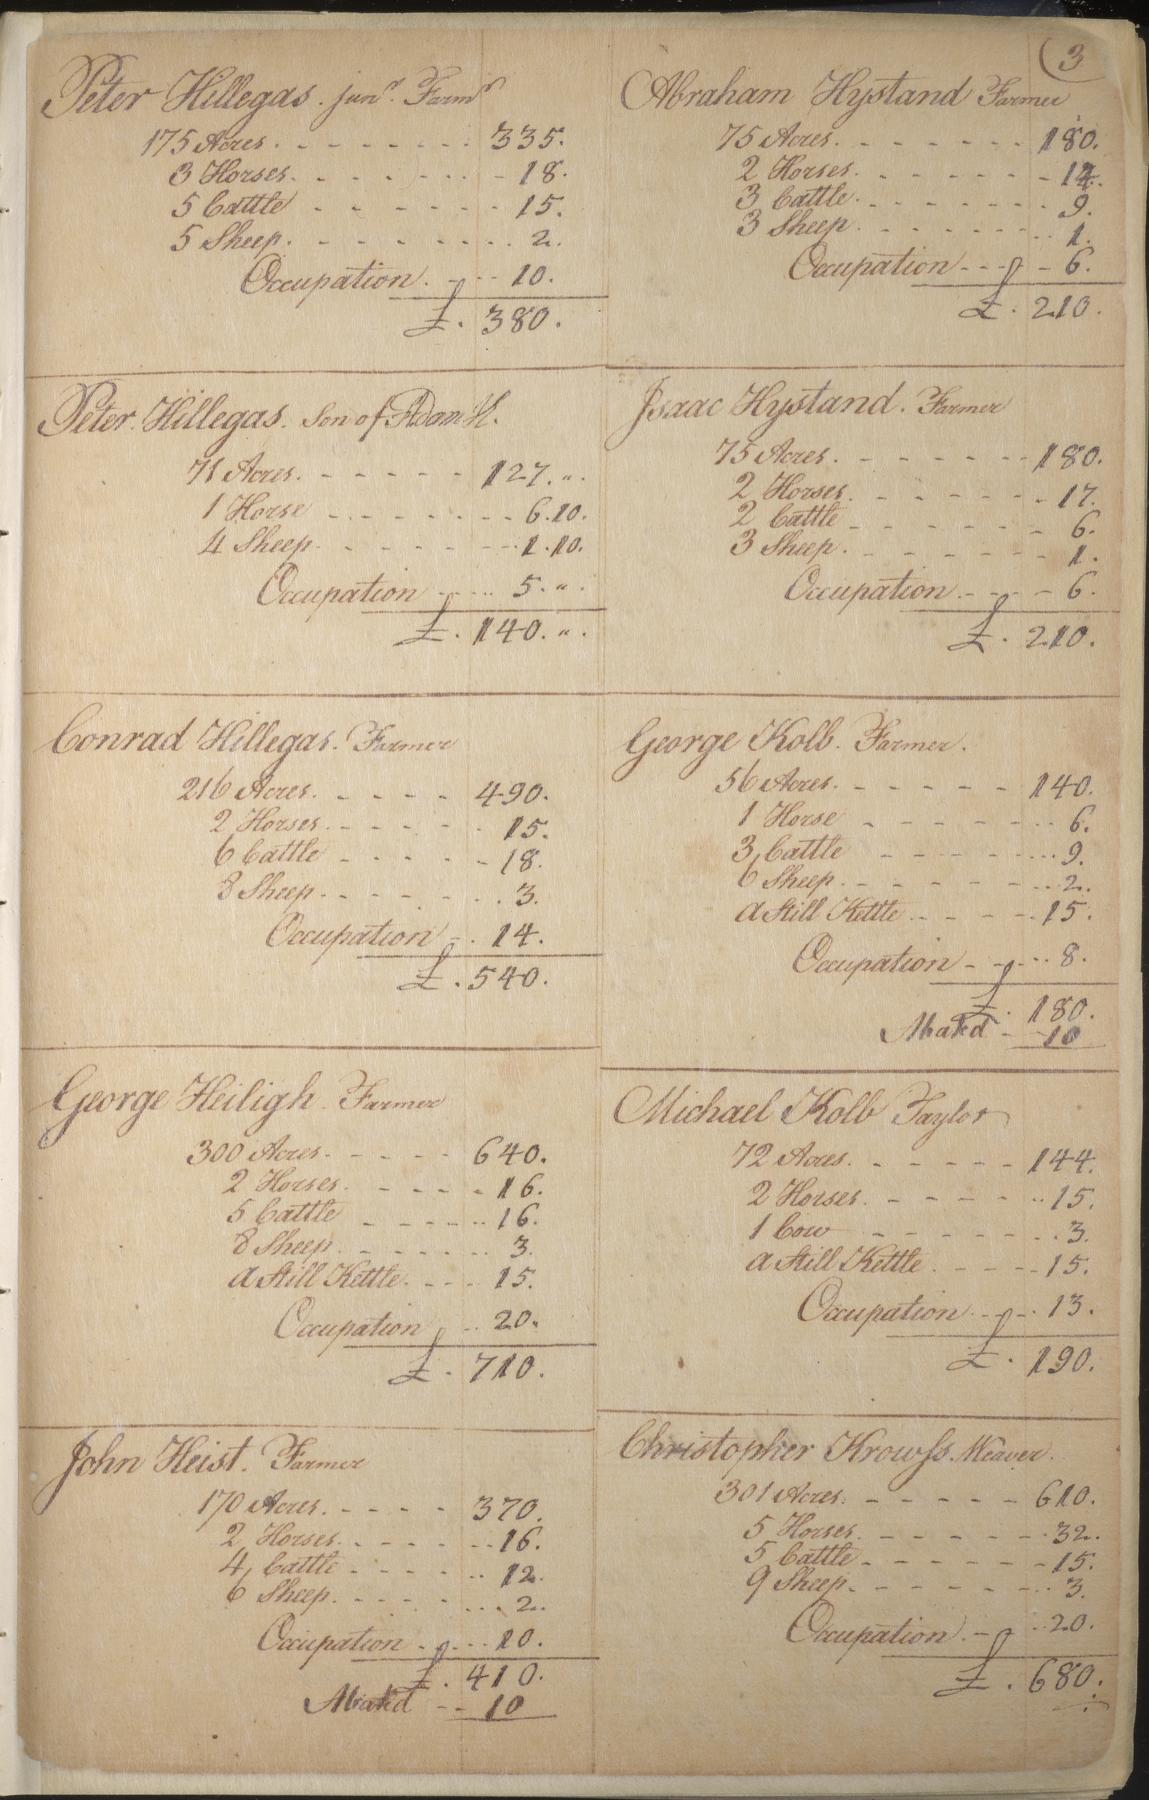 3
Peter Hillegas. junr. Farmr
175 Acres. - - - - - - - 335.
3 Horses. - - - - - - - 18.
5 Cattle - - - - - - - 15.
5 Sheep. - - - - - - - 2.
Occupation. - - - 10.
£. 380.
Peter. Hillegas. Son of Adam H.
71 Acres. - - - - - - 127. "
1 Horse - - - - - - - 6.10.
4 Sheep. - - - - - - - 1.10.
Occupation - - - 5. "
£. 140. "
Conrad Hillegas. Farmer
216 Acres. - - - - - 490.
2 Horses. - - - - - 15.
6 Cattle - - - - - 18.
8 Sheep. - - - - - - 3.
Occupation - . 14.
£. 540.
George Heiligh. Farmer
300 Acres. - - - - - 640.
2 Horses. - - - - - 16.
5 Cattle - - - - - 16.
8 Sheep. - - - - - - 3.
A Still Kettle. - - - 15.
Occupation - - 20.
£. 710.
John Heist. Farmer
170 Acres. - - - - - 370.
2 Horses. - - - - - 16.
4 Cattle - - - - - 12.
6 Sheep. - - - - - 2.
Occupation - - - 10.
£. 410.
Abated - - 10
Abraham Hystand Farmer
75 Acres. - - - - - - 180.
2 Horses. - - - - - - 14.
3 Cattle. - - - - - - 9.
3 Sheep. - - - - - - 1.
Occupation - - - - 6.
£. 210.
Isaac Hystand. Farmer
75 Acres. - - - - - - 180.
2 Horses. - - - - - - 17.
2 Cattle - - - - - - 6.
3 Sheep. - - - - - - 1.
Occupation. - - - 6.
£. 210.
George Kolb. Farmer.
56 Acres. - - - - - - 140.
1 Horse - - - - - - 6.
3 Cattle - - - - - - 9.
6 Sheep. - - - - - - 2.
A Still Kettle. - - - - 15.
Occupation - - - 8.
£. 180.
Abated - 10
Michael Kolb Taylor
72 Acres. - - - - - - 144.
2 Horses. - - - - - - 15.
1 Cow - - - - - - 3.
A Still Kettle. - - - - 15.
Occupation. - - . 13.
£. 190.
Christopher Krowss. Weaver.
301 Acres. - - - - - - 610.
5 Horses. - - - - - - 32.
5 Cattle - - - - - - 15.
9 Sheep. - - - - - - 3.
Occupation. - - 20.
£. 680.